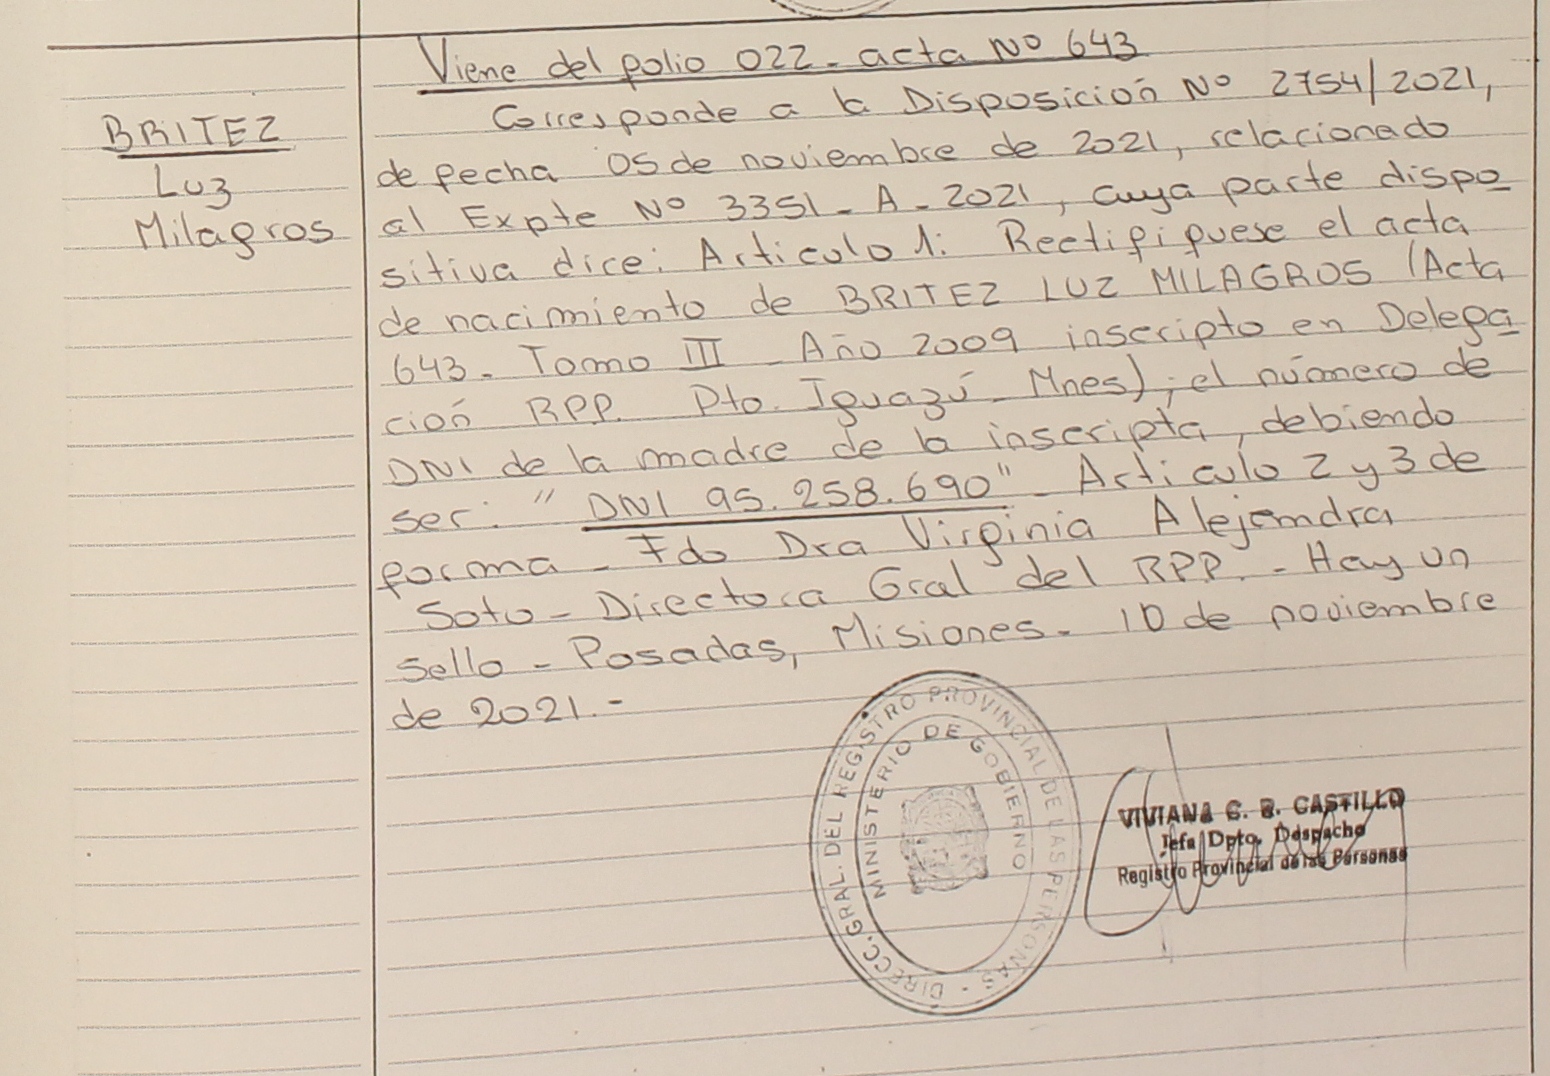 BRITEZ
Luz
Milagros
Viene del folio 022- acta Nº 643
Corresponde a la Disposición Nº 2754/2021,
de fecha 05 de noviembre de 2021, relacionado
al Expte Nº 3351-A-2021, cuya parte dispo
sitiva dice: Articulo 1: Rectifiquese el acta
de nacimiento de BRITEZ LUZ MILAGROS (Acta
643- Tomo III - Año 2009 inscripto en Delega
ción RPP. Pto. Iguazú - Mnes); el número de
DNI de la madre de la inscripta, debiendo
ser: "DNI 95.258.690" - Articulo 2 y 3 de
forma - Fdo Dra Virginia Alejandra
Soto - Directora Gral del RPP. - Hay un
sello - Posadas, Misiones - 10 de noviembre
de 2021.-
DIRECC. GRAL. DEL REGISTRO PROVINCIAL DE LAS PERSONAS -
MINISTERIO DE GOBIERNO
VIVIANA G. B. CASTILLO
Jefa Dpto. Despacho
Registro Provincial de las Personas